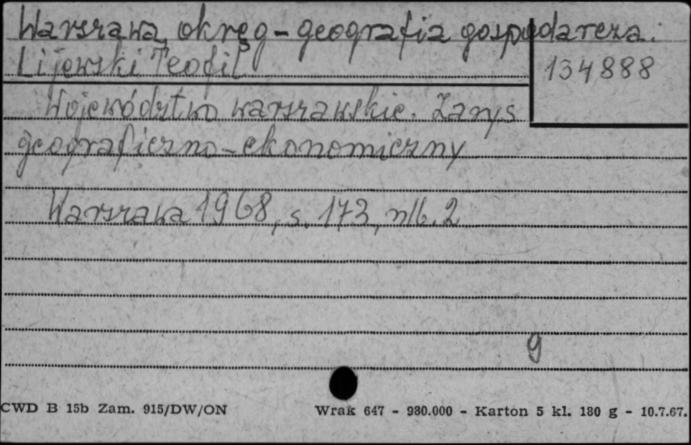 Warszawa, okręg - geografia gospodarcza.
Lijewski Teofil
134888
Województwo warszawskie. Zarys
geograficzno-ekonomiczny
Warszawa 1968, s. 173, nlb. 2
9
CWD B 15b Zam. 915/DW/ON
Wrak 647 - 980.000 - Karton 5 kl. 180 g - 10.7.67.